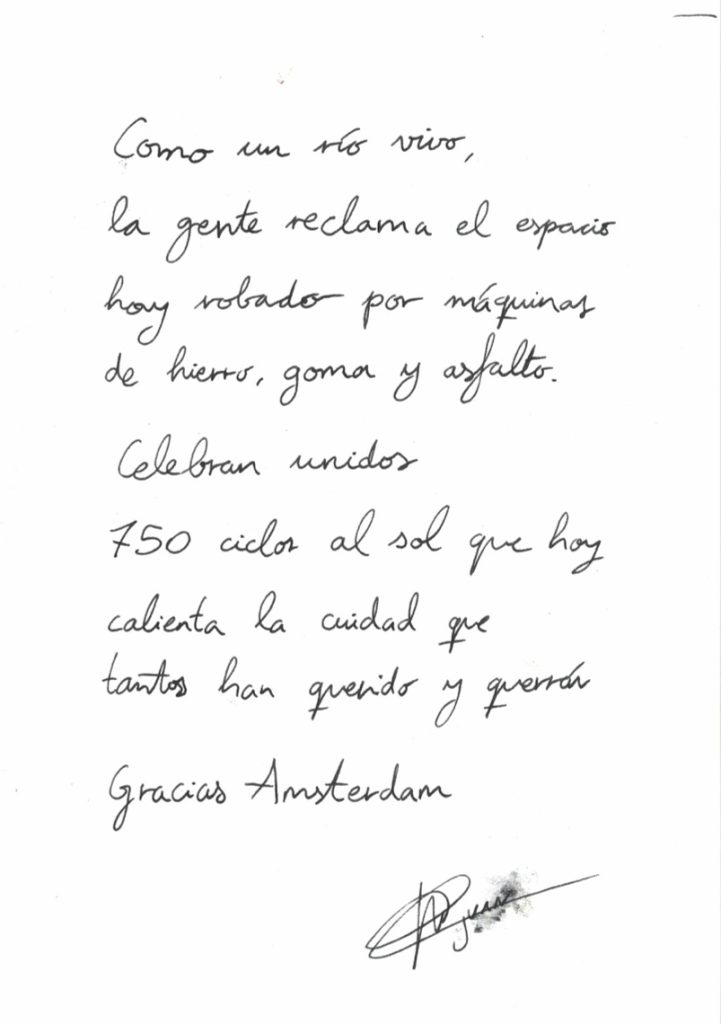 Como un río vivo,
la gente reclama el espacio
hoy robado por máquinas
de hierro, goma y asfalto.
Celebran unidos
750 ciclos al sol que hoy
calienta la cuidad que
tantos han querido y querrán
Gracias Amsterdam
Juan